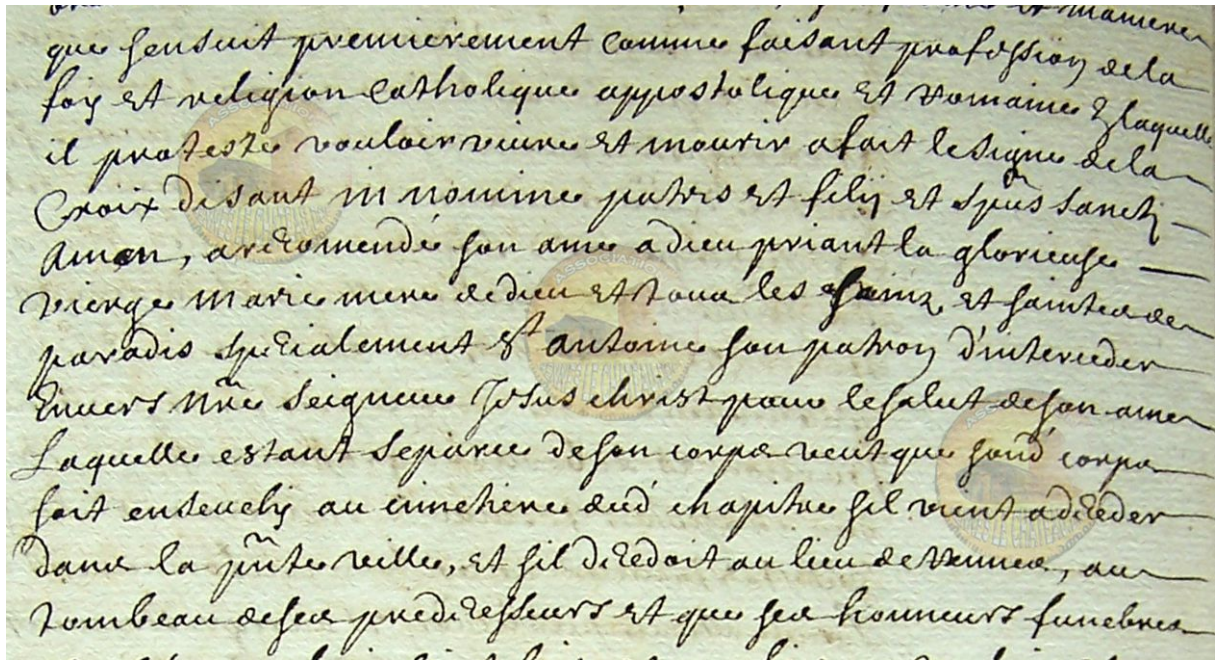 et maniere
que sensuit premierement comme faisant profession de la
foy et religion Catholique appostolique et Romaine & laquelle
il proteste vouloir vivre et mourir a fait le signe de la
Croix disant in nomine patris et filij et spũs sancti
Amen, a recomendé son ame a dieu priant la glorieuse
vierge marie mere de dieu et tous les saintz et saintes de
paradis specialement St antoine son patron d'interceder
Envers nře seigneur Jesus christ pour le salut de son ame
Laquelle estant separee de son corps veut que soud' corps
soit ensevely au cimetiere dud' chapitre sil vient a deceder
dans la pñte ville, et sil decedoit au lieu de Vennes, au
tombeau de ses predecesseurs et que ses honneurs funebres